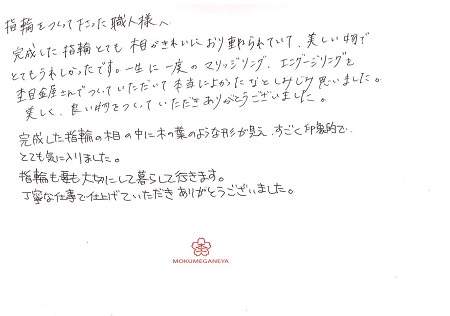 指輪をつくって下さった職人様へ
完成した指輪とても木目がきれいにおり重ねられていて、美しい物で
とてもうれしかったです。一生に一度のマリッジリング、エンゲージリングを
杢目金屋さんでつくっていただいて本当によかったなとしみじみ思いました。
美しく、良い物をつくっていただきありがとうございました。
完成した指輪の木目の中に木の葉のような形が見え、すごく印象的で、
とても気に入りました。
指輪も妻も大切にして暮らして行きます。
丁寧な仕事で仕上げていただきありがとうございました。
MOKUMEGANEYA